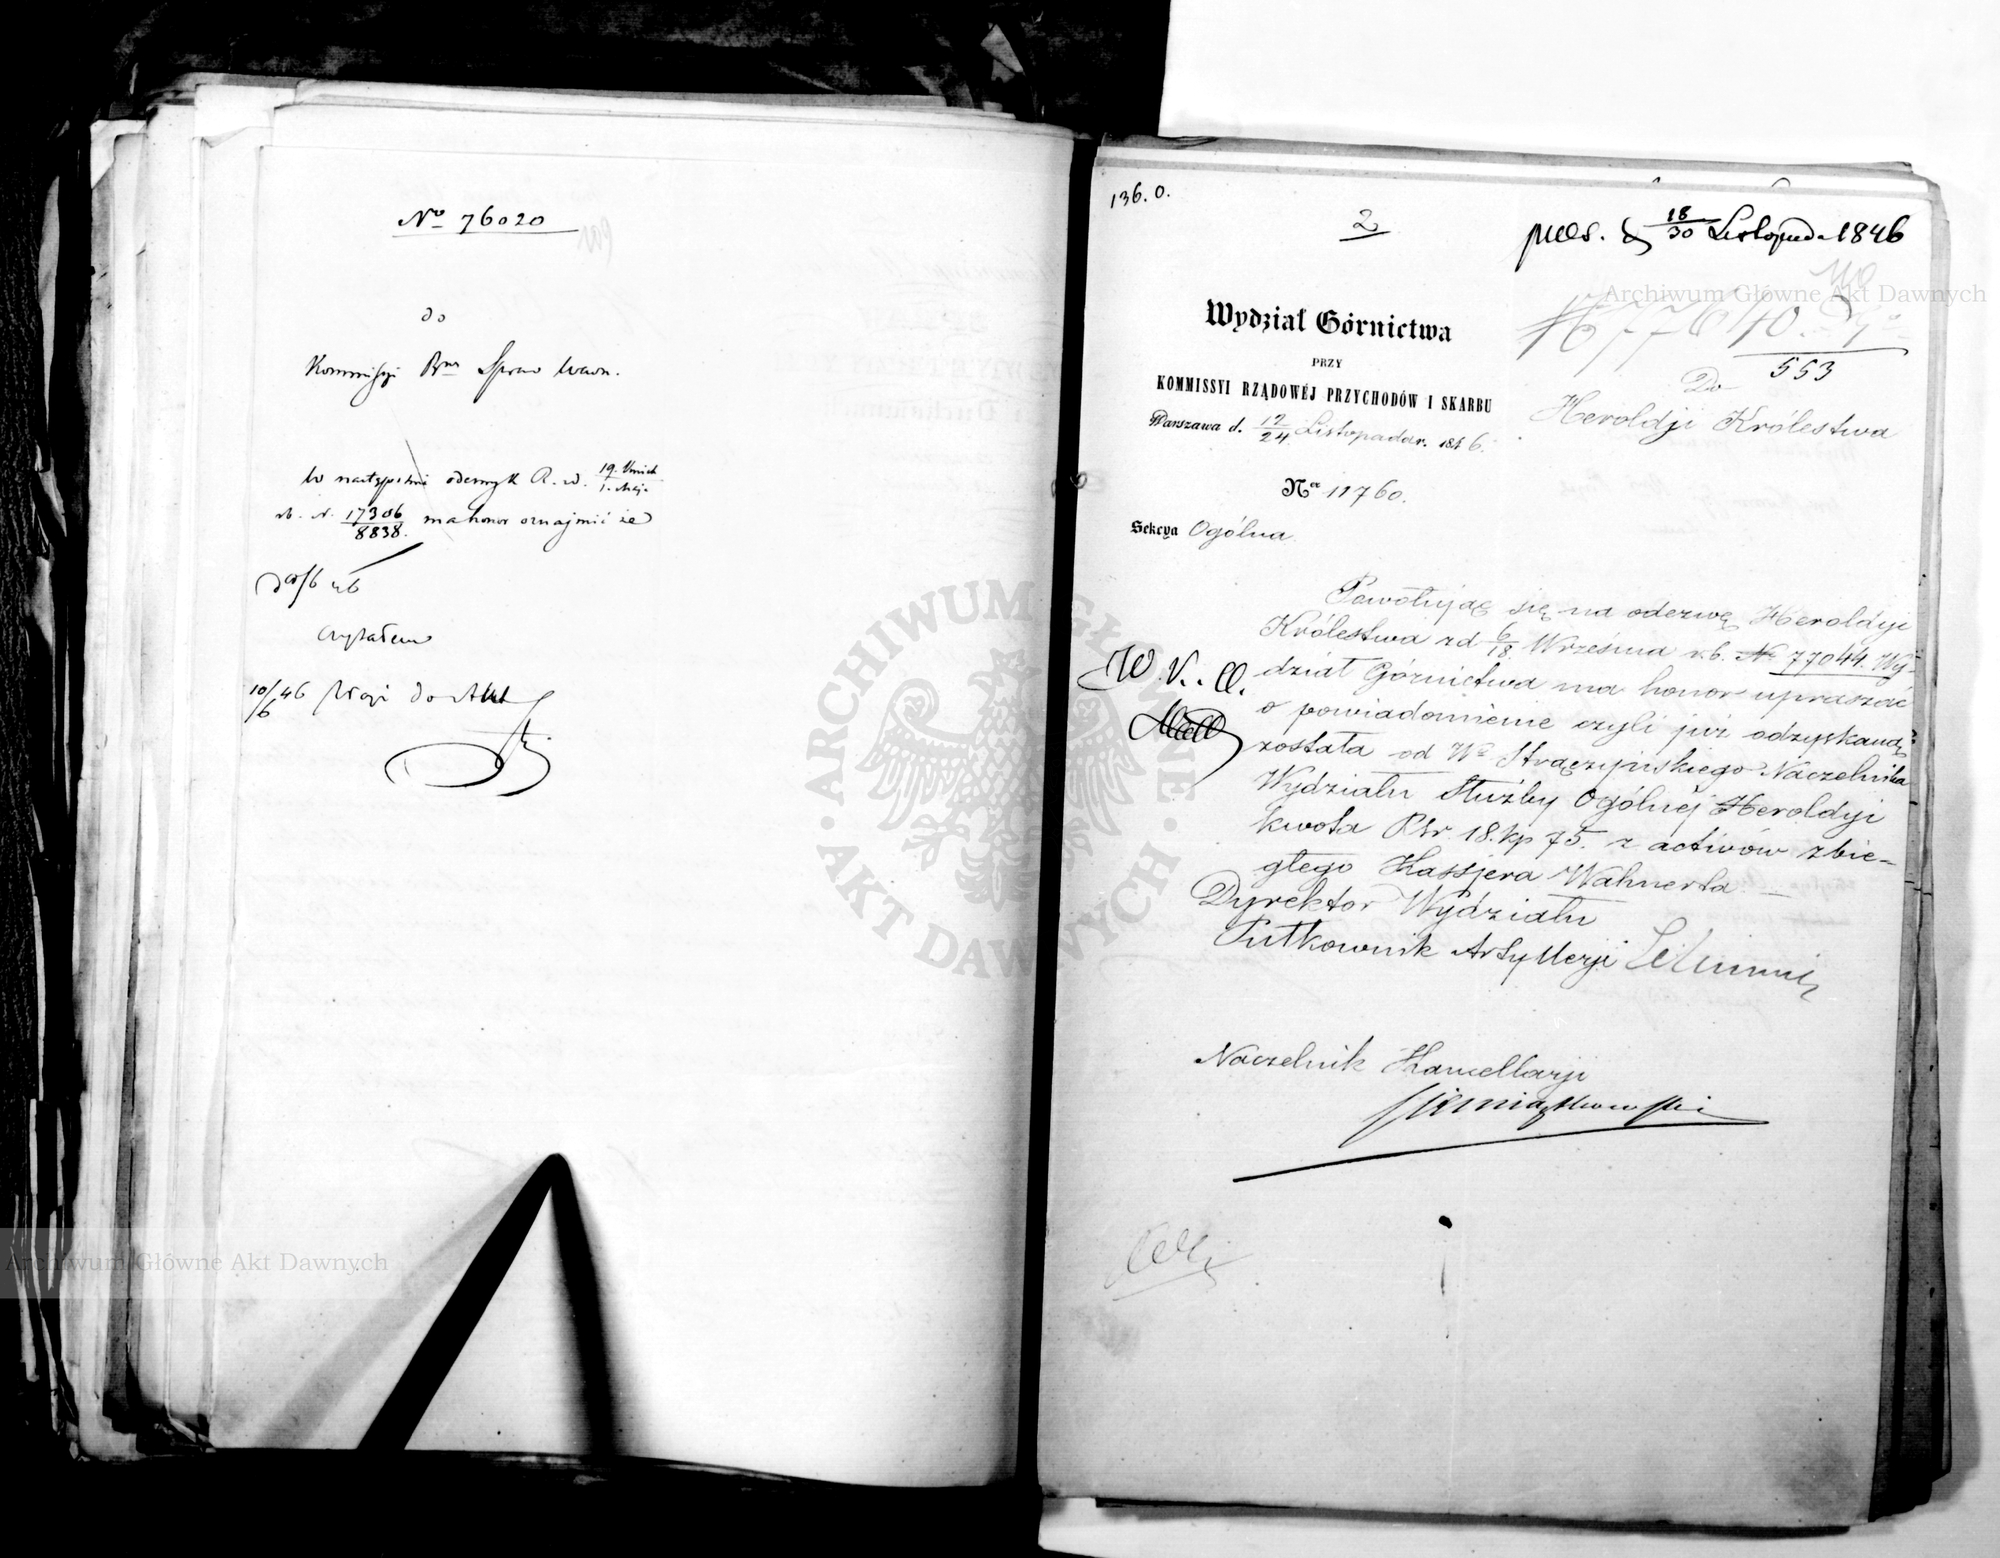 No 76020
do
Kommissyi Rz. Spraw Wewn.
W następstwie odezwy K. R. z d. 19. Kwiet / 1. Maja
rb. N. 17306 / 8838. ma honor oznajmić że
10/6 46
czytałem
10/6 46 do Akt
136. O.
2
pres. d. 18/30 Listopada 1846
77640
553
Wydział Górnictwa
PRZY
KOMMISSYI RZĄDOWÉJ PRZYCHODÓW I SKARBU
Warszawa d. 12/24 Listopada r. 1846.
Ner 11760.
Sekcya Ogólna
Do
Heroldji Królestwa
Powołując się na odezwę Heroldyi
Królestwa z d 6/18 Września r.b. No 77044. Wy-
dział Górnictwa ma honor upraszać
o powiadomienie czyli już odzyskaną
została od Wo Strączyńskiego Naczelnika
Wydziału Służby Ogólnéj Heroldyi
kwota Rsr. 18. kp 75. z activów zbie-
głego Kassjera Wahnerta
Dyrektor Wydziału
Pułkownik Artyllerji
Naczelnik Kancellarji
ARCHIWUM GŁÓWNE AKT DAWNYCH
Archiwum Główne Akt Dawnych
Archiwum Główne Akt Dawnych